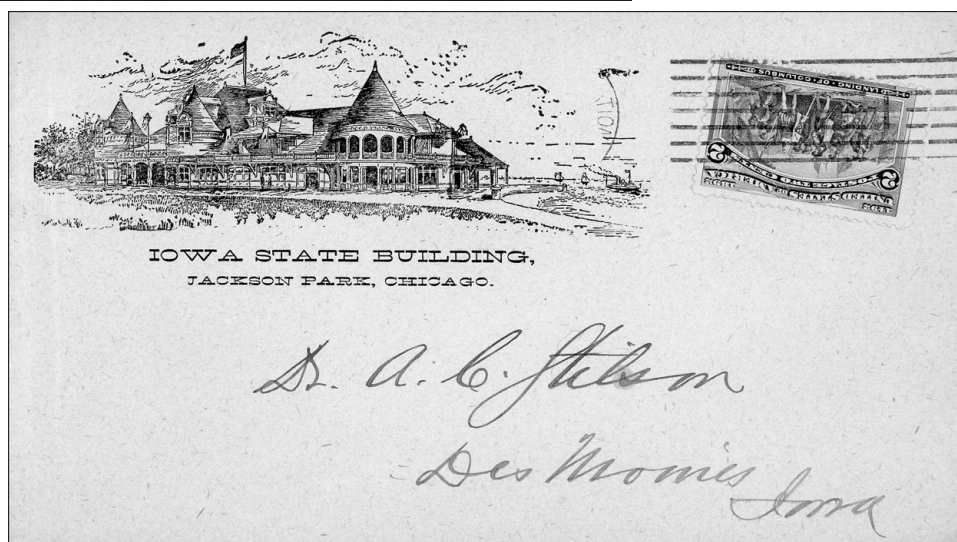 IOWA STATE BUILDING,
JACKSON PARK, CHICAGO.
LANDING OF COLUMBUS
2 2
Dr. A. C. Stilson
Des Moines
Iowa